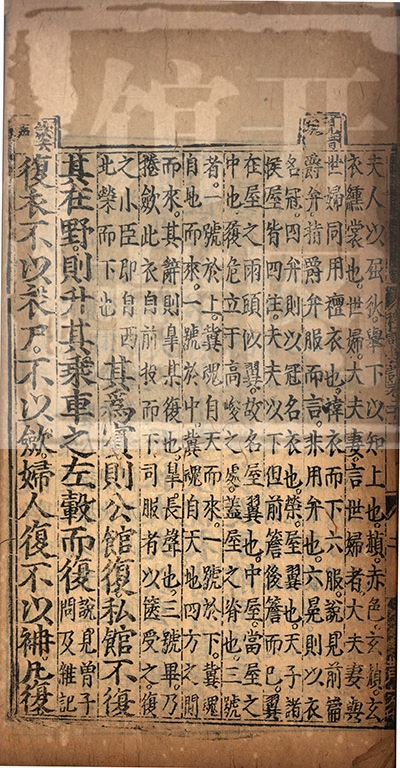 夫人以屈狄。舉下以知上也。赬。赤色。玄赬。玄
衣纁裳也。世婦。大夫妻。言世婦者。大夫妻與
世婦同用襢衣也。褘衣而下六服。說見前篇
爵弁。指爵弁服而言。非用弁也。六冕則以衣
名冠。四弁則以冠名衣也。榮。屋翼也。天子諸
侯屋皆四注。大夫以下但前簷後簷而已。翼
在屋之兩頭似翼。故名屋翼也。中屋。當屋之
中也。履危立于高峻之處。蓋屋之脊也。三號
者。一號於上。冀魂自天而來。一號於下。冀魂
自地而來。一號於中。冀魂自天地四方之間
而來。其辭則皐某復也。皐。長聲也。三號畢。乃
捲斂此衣自前投而下。司服者以篋受之。復
之小臣即自西
北榮而下也
其為賓則公館復私館不復
其在野。則升其乘車之左轂而復
說見曾子
問及雜記
復衣不以衣尸。不以斂。婦人復不以袡。凡復